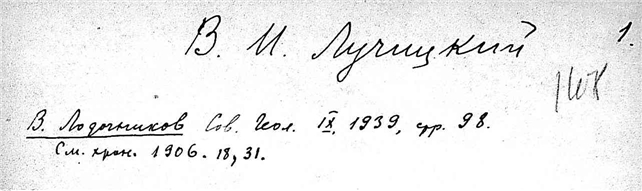 В. И. Лучицкий 1.
В. Лодочников Сов. Геол. IX, 1939, стр. 98.
См. хран. 1906. 18, 31.